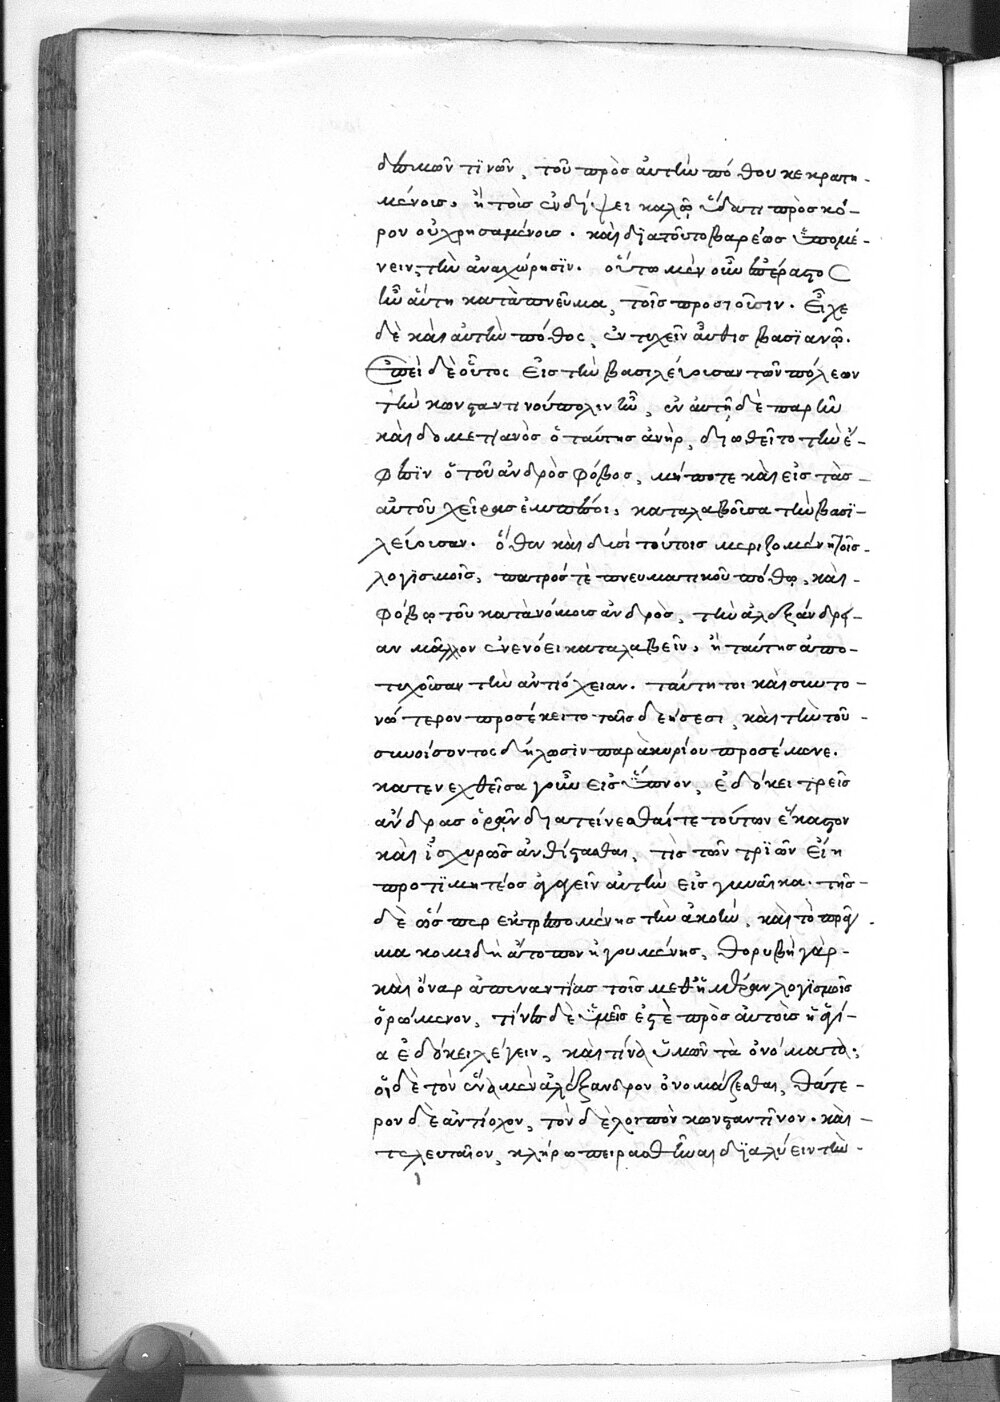 δεπικῶν τϊνῶν, τοῦ πρὸς αὐτὴν πόθου κεκρατη-
μένοις. ἢ τοῖς ἐν δίψει καλῷ ὕδατι πρὸς κό-
ρον οὐ χρησαμένοις. καὶ δϊατοῦτο βαρέως ὑπομέ-
νειν, τὴν ἀναχώρησϊν. οὕτω μὲν οὖν ἐπέραστος
ἦν αὕτη κατὰ πνεῦμα, τοῖς προσιοῦσιν. Εἶχε
δὲ καὶ αὐτὴν πόθος, ἐντυχεῖν αὖθις βασϊανῷ.
Ἐπεὶ δὲ οὗτος εἰς τὴν βασιλεύουσαν τῶν πόλεων
τὴν κωνσταντινούπολιν ἦν, ἐν αὐτῇ δὲ παρῆν
καὶ δομετιανὸς ὁ ταύτης ἀνὴρ, διωθεῖτο τὴν ἔ-
φεσϊν ὁ τοῦ ἀνδρὸς φόβος, μήποτε καὶ εἰς τὰς
αὐτοῦ χεῖρας ἐμπέσοι, καταλαβοῦσα τὴν βασϊ-
λεύουσαν. ὅθεν καὶ ἐπὶ τούτοις μεριζομένη τοῖς
λογϊσμοῖς, πατρός τὲ πνευματικοῦ πόθῳ, καὶ
φόβῳ τοῦ κατὰ νόμους ἀνδρὸς, τὴν ἀλεξάνδρει-
αν μᾶλλον ἐνενόει καταλαβεῖν, ἢ ταύτης ἀπο-
τυχοῦσαν τὴν ἀντιόχειαν. ταύτη τοι καὶ συντο-
νώτερον προσέκειτο ταῖς δεήσεσι, καὶ τὴν τοῦ
συνοίσοντος δήλωσϊν παρὰ κυρίου προσέμενε.
κατενεχθεῖσα γοῦν εἰς ὕπνον, ἐδόκει τρεῖς
ἄνδρας ὁρᾷν δϊατείνεσθαί τε τούτων ἕκαστον
καὶ ἰσχυρῶς ἀνθίστασθαι, τὶς τῶν τρϊῶν εἴη
προτϊμητέος ἀγαγεῖν αὐτὴν εἰς γυναῖκα. τῆς
δὲ ὥσπερ ἐκτρεπομένης τὴν ἀκοὴν, καὶ τὸ πρᾶγ
μα κομιδῆ ἄτοπον ἡγουμένης, θορυβῇ γὰρ
καὶ ὄναρ ἀπεναντίας τοῖς μεθ' ἡμέραν λογϊσμοῖς
ὁρώμενον, τίνες δὲ ὑμεῖς ἐστὲ πρὸς αὐτοὺς ἡ ἁγί-
α ἐδόκει λέγειν, καὶ τίνα ὑμῶν τὰ ὀνόματα;
οἱ δὲ τὸν ἕνα μὲν ἀλέξανδρον ὀνομάζεσθαι, θάτε-
ρον δὲ ἀντίοχον, τὸν δὲ λοιπὸν κωνσταντῖνον. καὶ
τελευταῖον, κλήρω πειρασθῆναι δϊαλύειν τὴν